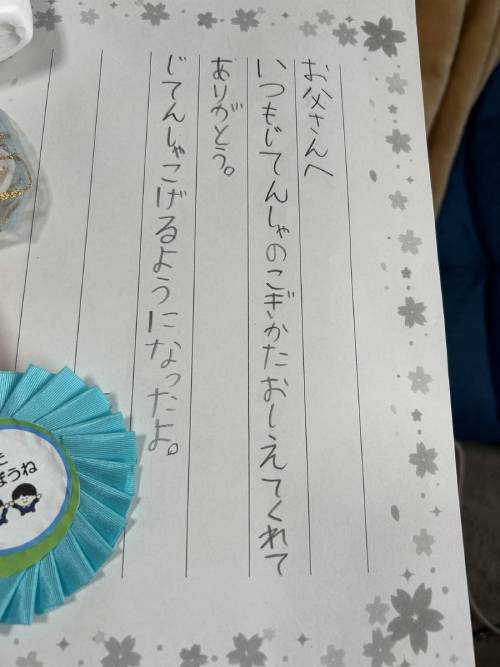 お父さんへ
いつもじてんしゃのこぎかたおーえてくれて
ありがとう。
じてんしゃこげるようになったよ。